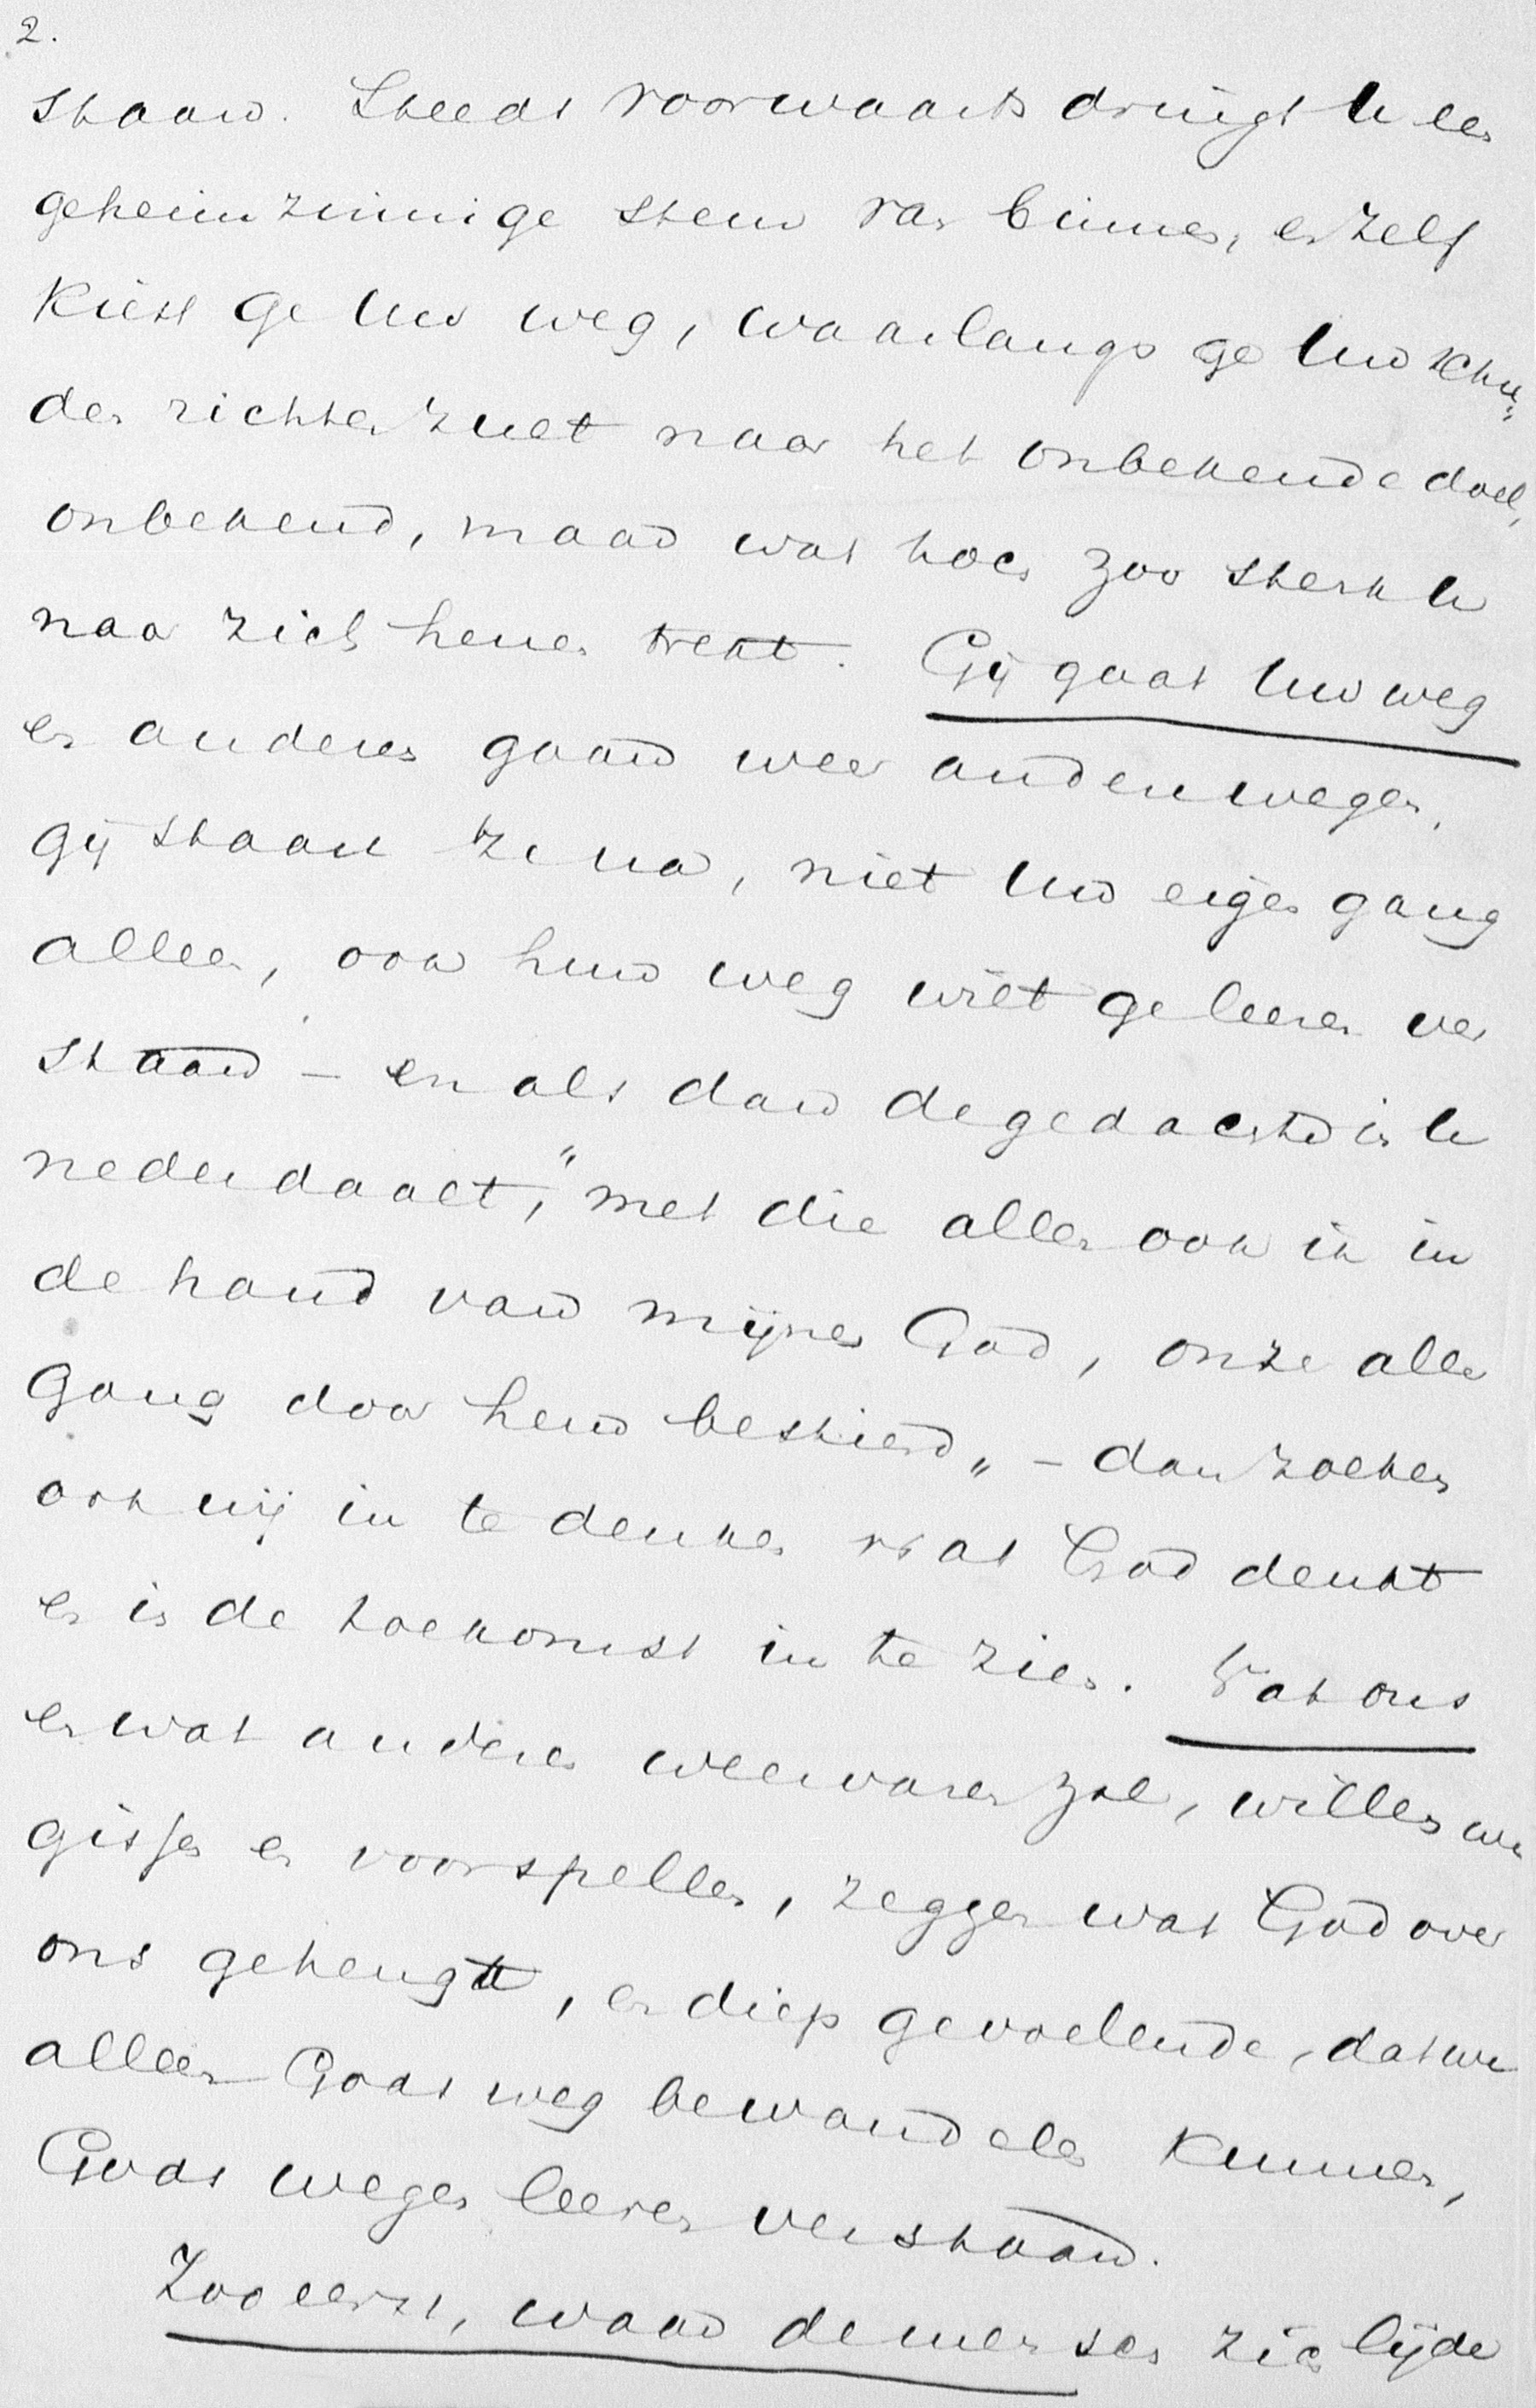 2.
staan. Steeds voorwaarts dringt U een
geheimzinnige stem van binnen, en zelf
kiest ge Uw weg, waarlangs ge Uw schre„
den richten zult naar het onbekende doel,
onbekend, maar wat toch zoo sterk U
naar zich henen trekt. Gij gaat Uw weg
en anderen gaan weer andere wegen,
gij staart ze na, niet Uw eigen gang
alleen, ook hun weg wilt ge leeren ver
staan – en als dan de gedachte in U
nederdaalt, "met die allen ook ik in
de hand van mijnen God, onze aller
gang door hem bestierd„ – dan zoeken
ook wij in te denken wat God denkt
en in de toekomst in te zien. Wat ons
en wat anderen weervaren zal, willen we
gissen en voorspellen, zeggen wat God over
ons gehengt, en diep gevoelende, dat we
alleen Gods weg bewandelen kunnen,
Gods wegen leeren verstaan.
Zoo eerst, waar de mensch zie lijde